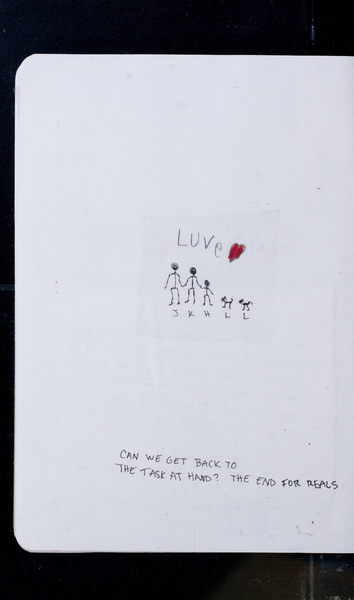 LUVe
J K H L L
CAN WE GET BACK TO
THE TASK AT HAND? THE END FOR REALS